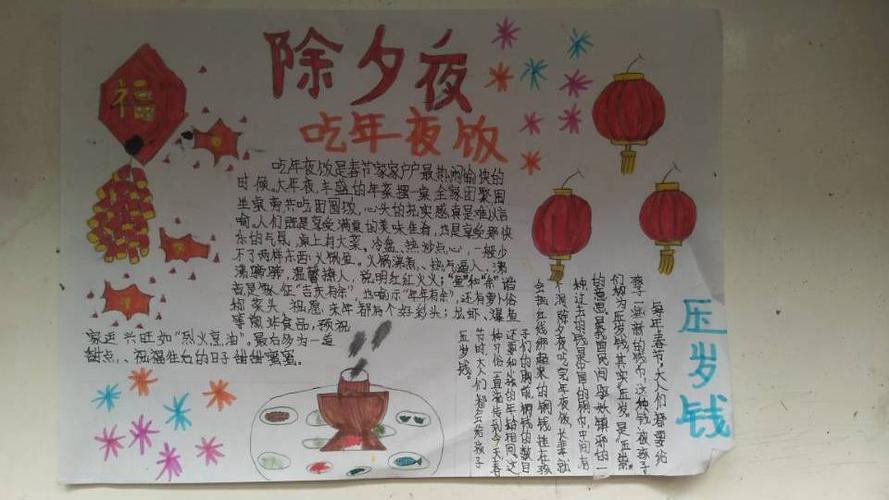 除夕夜
福
吃年夜饭
吃年夜饭是春节家家户户最热闹愉快的
时候。大年夜,丰盛的年菜摆一桌,全家团聚,围
坐桌旁,共吃团圆饭,心头的充实感真是难以言
喻。人们既是享受满桌的美味佳肴,也是享受那快
乐的气氛,桌上有大菜、冷鱼、热炒点心,一般少
不了两样东西,火锅鱼。火锅沸煮、热气逼人、沸
沸腾腾,温馨撩人,说明红红火火;"鱼"和"余"谐
音是象征"吉庆有余",也喻示"年年有余",还有萝卜俗
称菜头,祝愿来年都有个好彩头;龙虾、爆鱼
等煎炸食品,预祝
家运兴旺如"烈火烹油"。最后多为一道
甜点、祝福往后的日子甜甜蜜蜜。
压岁钱
每年春节,大人们都要给
孩子一些新的钱币,这种钱被孩子
们称为压岁钱,其实"压岁"是"压祟"
的意思。是我国民间驱妖镇邪的一
种
个洞,除夕夜吃完年夜饭,长辈就
会拿红线绑起来的铜钱挂在孩
子们的胸前,铜钱的数目
还要和小孩的年龄相同,这
种习俗一直流传到今天,春
节时,大人们都会给孩子
压岁钱。